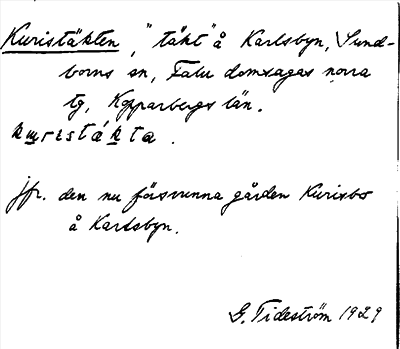 Kuristäkten, "täkt" å Karlsbyn, Sund-
borns sn, Falu domsagas norra
tg, Kopparbergs län.
kuristákta.
jfr. den nu försvunna gården Kurisbo
å Karlsbyn.
G. Tideström 1929